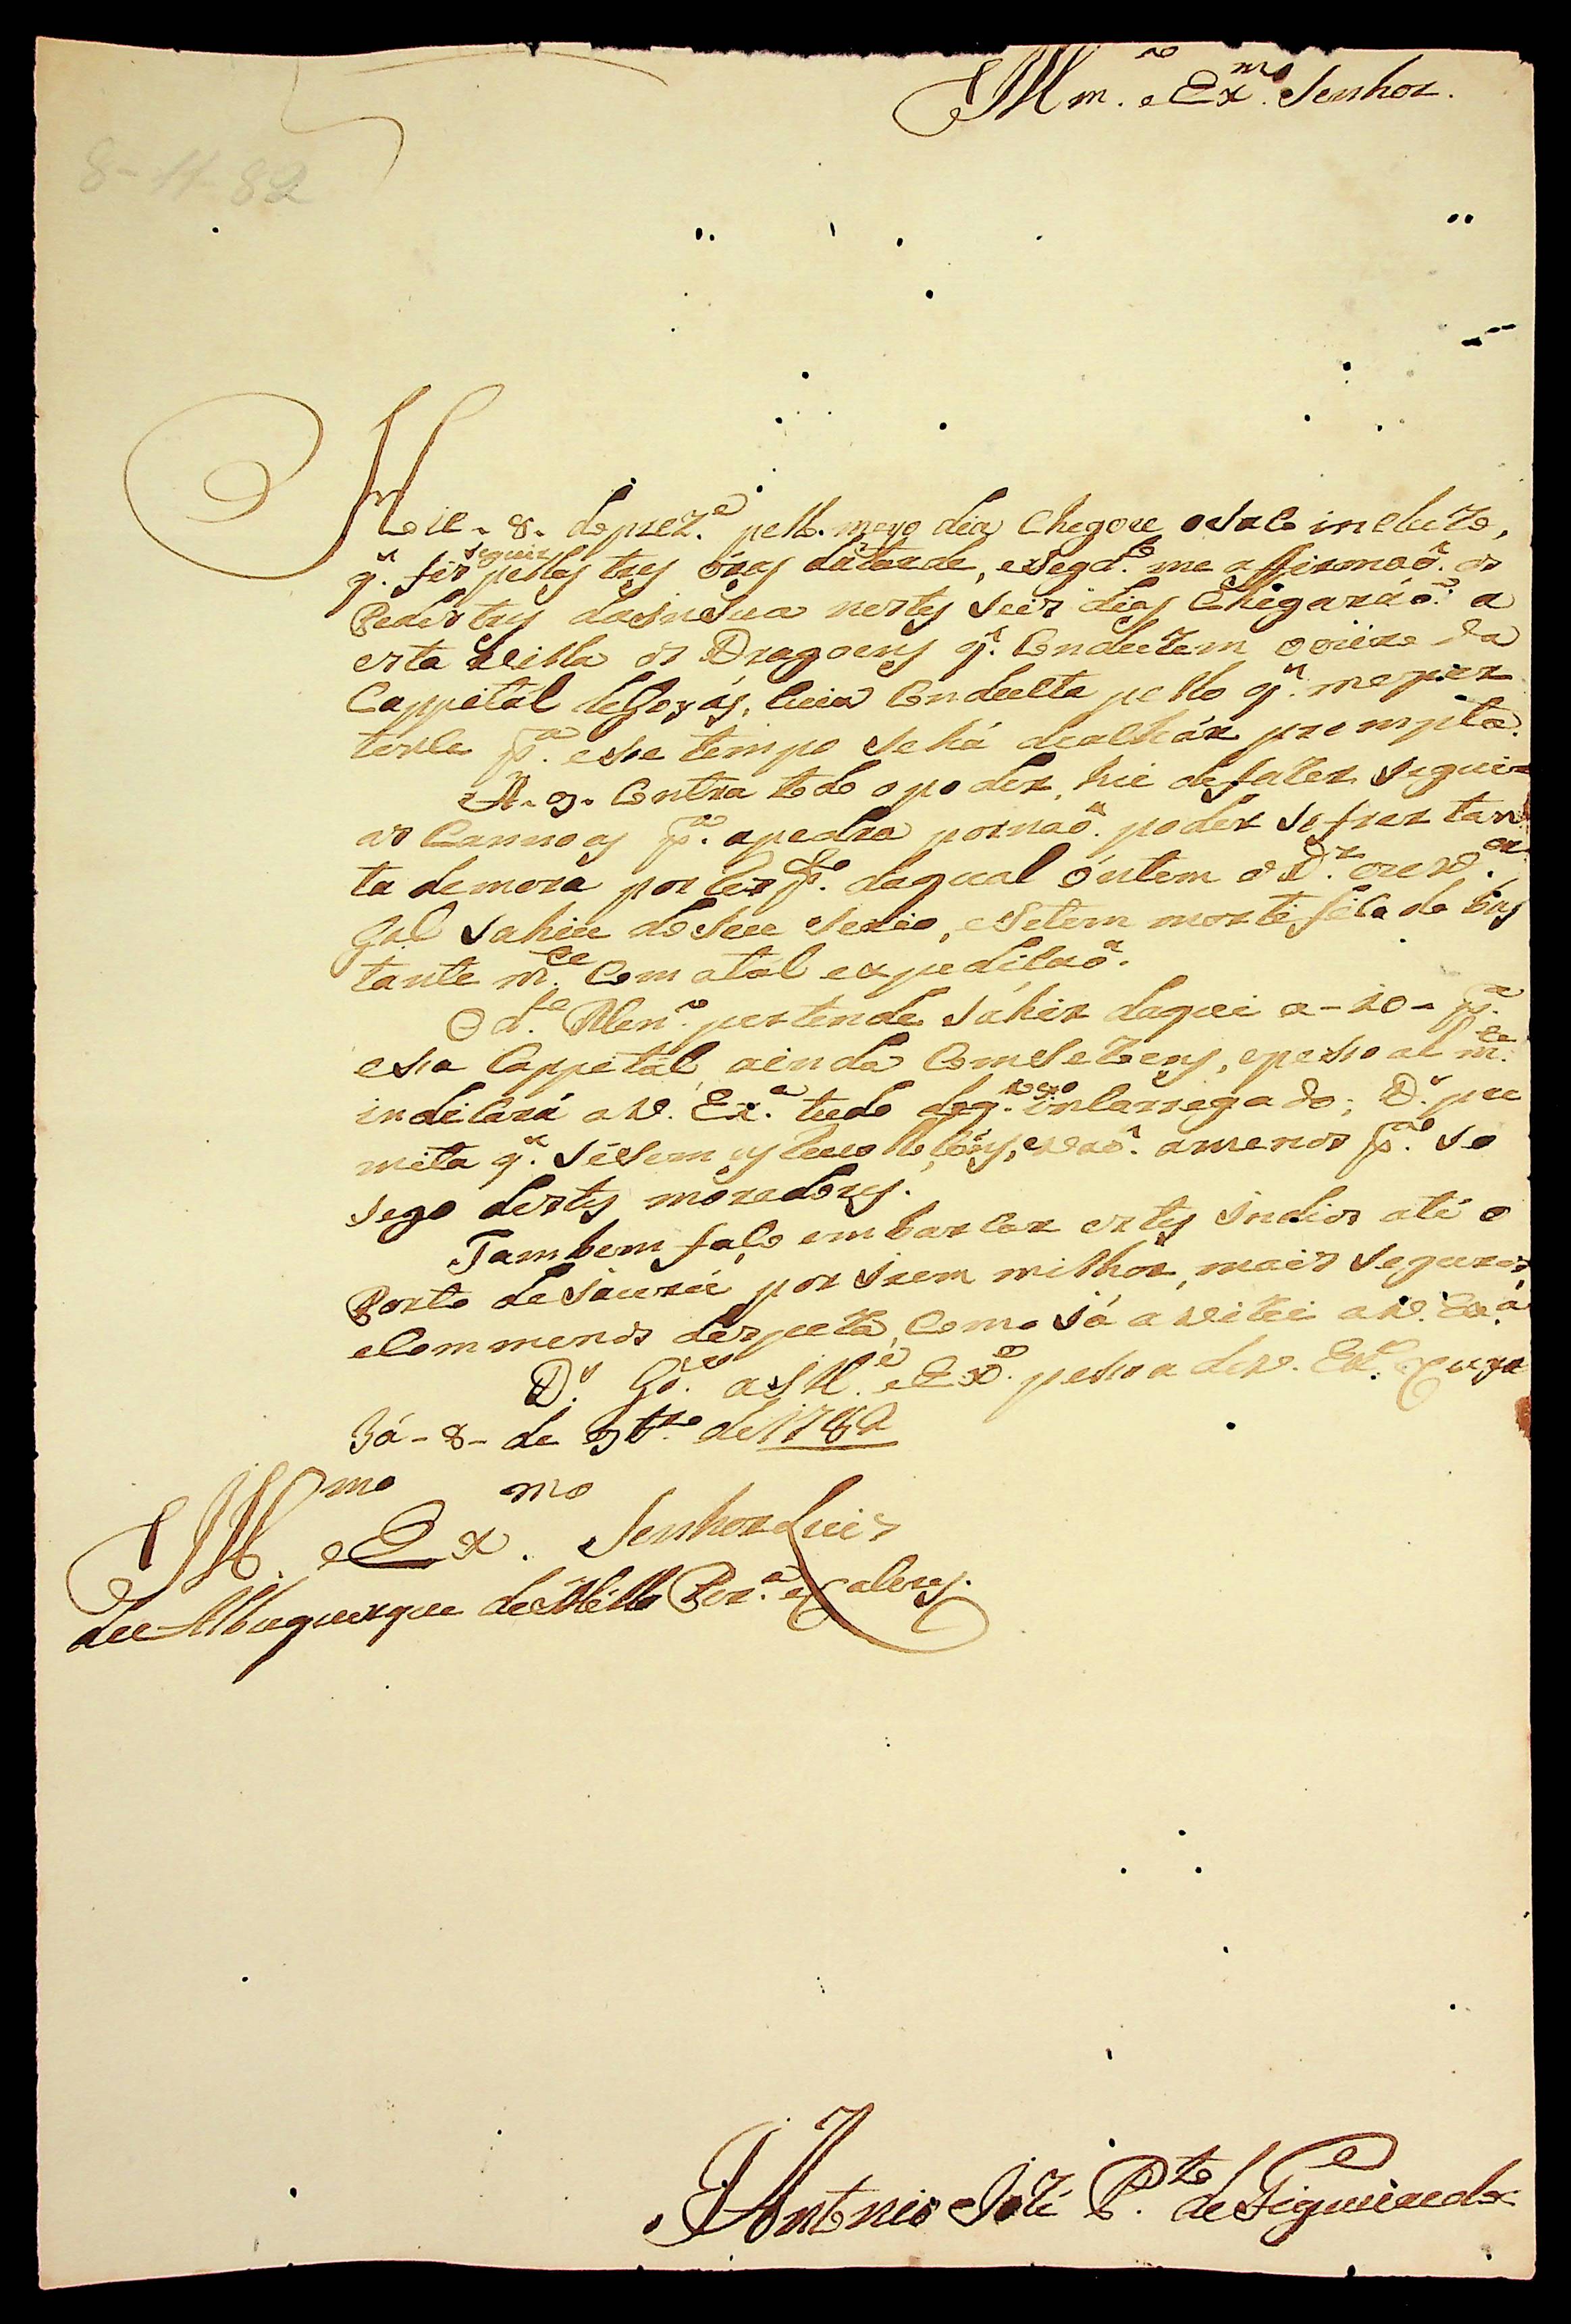 Illm.º e Ex.mo Senhor.
8-11-82
Hoie - 8 - do prez.e pello meyo dia chegou o saco incluzo,
seguir
q.' fis pellas tres óras da tarde, e segd.º me affirmaõ os
Pedestres da sua nestes seis dias chegaráõ a
esta Villa os Dragoens q.' conduzem o oiro da
Cappital de Goyás, cuia conducta pello q.' me per
tense p.ª esse tempo se há de achár prompta.
A - 9 - contra todo o poder, hei de fazer seguir
as Cannoas p.ª a pedra por naõ poder sofrer tan
ta demora por
da qual óntem o D.r
sahiu do seu serio, e se tem mortificado bas
tante m.ce com a tal expediçaõ.
O d.º pertende sahir daqui a - 10 - p.ª
essa Cappital, ainda com sezoens, e pessoal m.te
indicará a V. Ex.ª tudo de q.' vai incarregado; D.s per
mita q.' séssem
sego destes moradores.
Tambem faço embarcar estes Indios até o
Porto de Jaurú por irem milhor, mais seguros,
e com menos despeza, como já avizei a V. Ex.ª
D.s G.e a Ill.e e Ex.ª pessoa de V. Ex.ª Cuya
bá - 8 - de 9br.º de 1782
Ill.mo e Ex.mo Senhor Luis
de Albuquerque de Mello Per.ª e Caceres.
Antonio Jozé P.to de Figueiredo